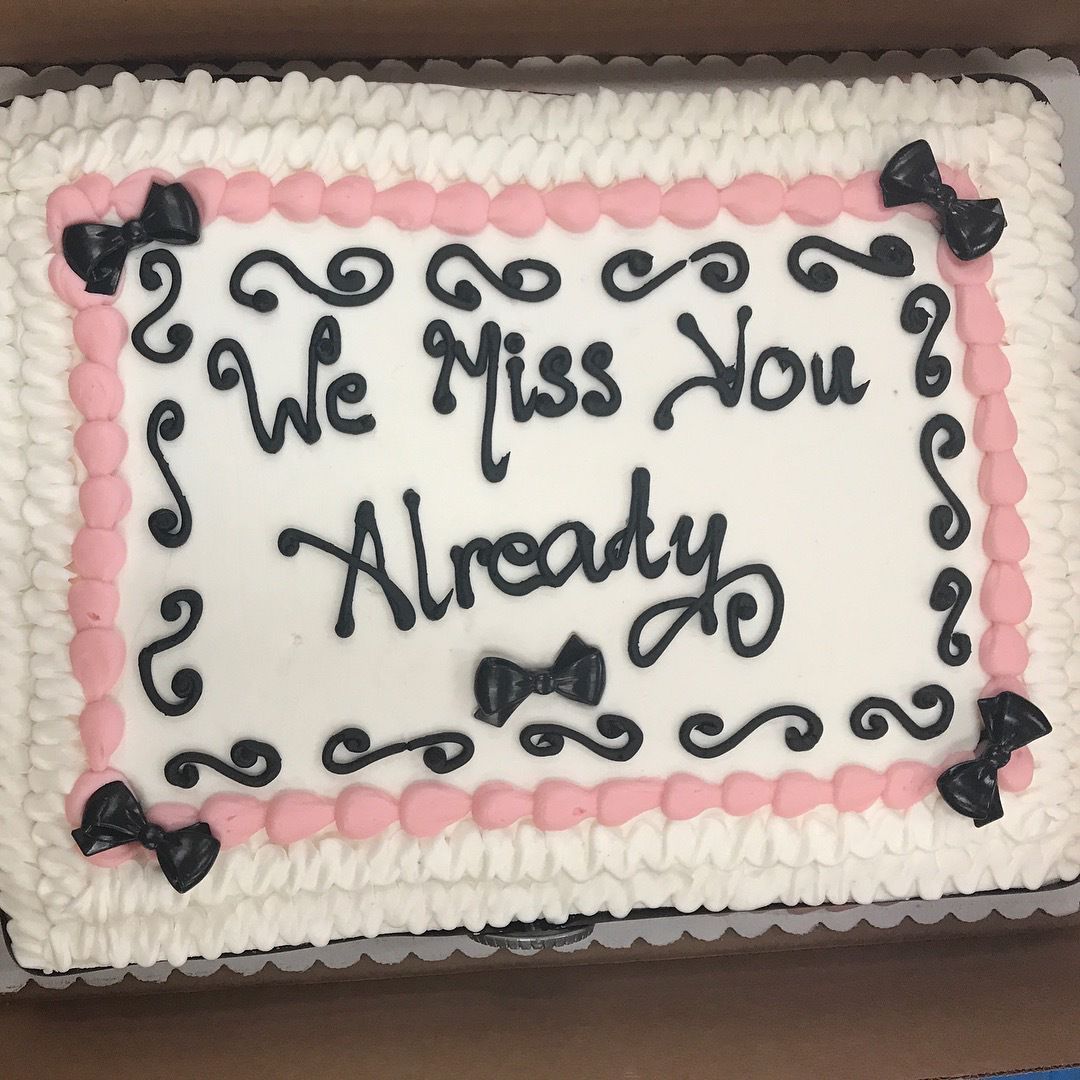 We Miss You
Already